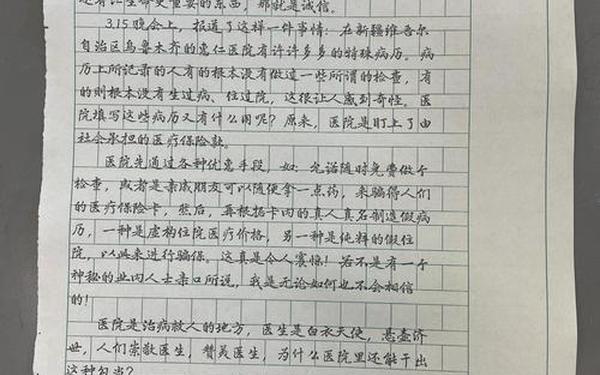 还有比生命更重要的东西，那就是诚信。
3.15晚会上，报道了这样一件事情：在新疆维吾尔
自治区乌鲁木齐的惠仁医院有许许多多的特殊病历。病
历上所记录的人有的根本没有做过一些所谓的检查，有
的则根本没有生过病、住过院，这很让人感到奇怪。医
院填写这些病历又有什么用呢？原来，医院是盯上了由
社会承担的医疗保险款。
医院先通过各种优惠手段，如：允诺随时免费做个
检查，或者是亲戚朋友可以随便拿一点药，来骗得人们
的医疗保险卡，然后，再根据卡内的真人真名制造假病
历，一种是虚构住院医疗价格，另一种是纯粹的假住
院，以此来进行骗保。这真是令人震惊！若不是有一个
神秘的业内人士亲口所说，我是无论如何也不会相信
的！
医院是治病救人的地方，医生是白衣天使，悬壶济
世，人们崇敬医生，赞美医生，为什么医院里还能干出
这种勾当？